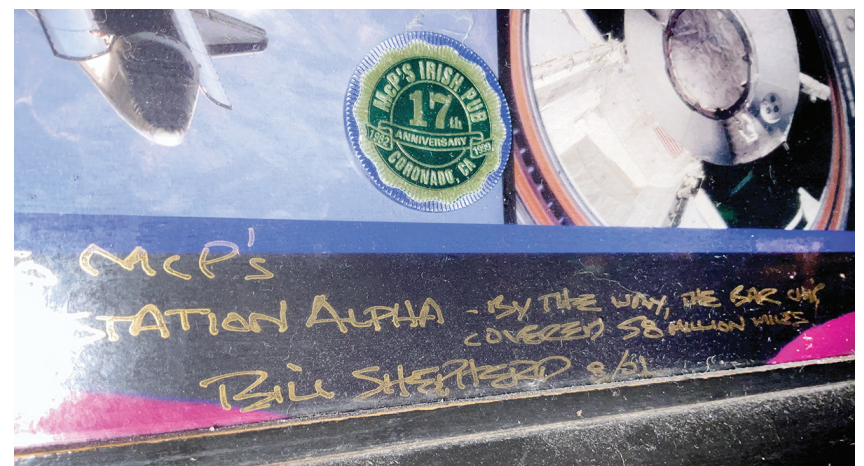 McP'S IRISH PUB
17th
ANNIVERSARY
1982 1999
CORONADO, CA
McP's
STATION ALPHA - BY THE WAY, THE BAR CHIP
COVERED 58 MILLION MILES
BILL SHEPHERD 8/01